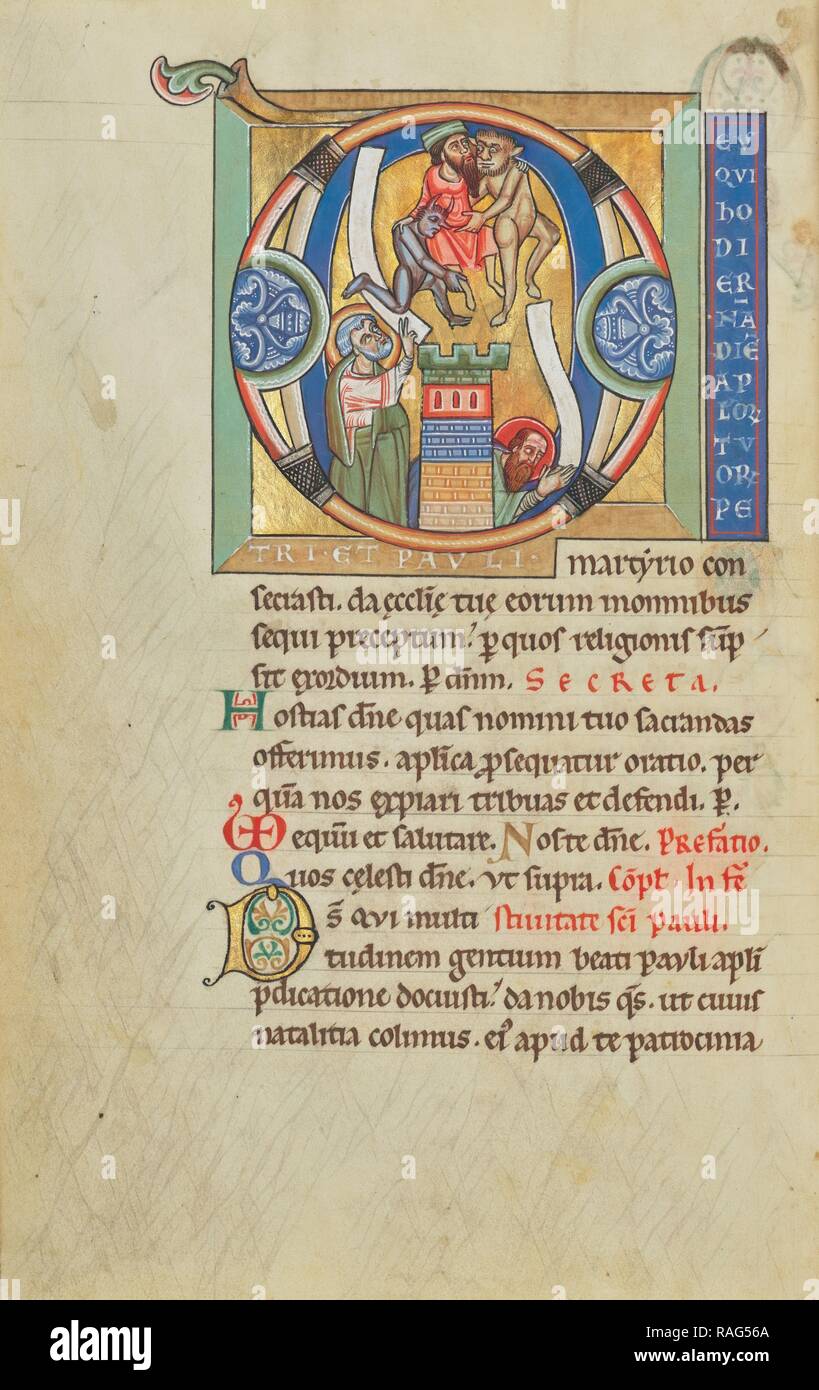 EV
QVI
hO
DI
ER
NA
DIĒ
AP
LOR
TV
OR
PE
TRI · ET PAVLI ·
martyrio con
secrasti. da ęcclię tue eorum in omnibus
sequi pręceptum. ꝑ quos religionis sūp
sit exordium. Ꝑ dn̄m. SECRETA.
Hostias dn̄e quas nomini tuo sacrandas
offerimus. apl̄ica ꝓsequatur oratio. per
quā nos expiari tribuas et defendi. Ꝑ.
equū et salutare. Nos te dn̄e. PREFATIO.
Quos cęlesti dn̄e. ut supra. Cōpl̄. In fe
DS̄ qui multi stiuitate sc̄i pauli.
tudinem gentium beati pauli apl̄i
p̄dicatione docuisti. da nobis qs̄. ut cuius
natalitia colimus. ei apud te patrocinia
alamy
Image ID: RAG56A
www.alamy.com